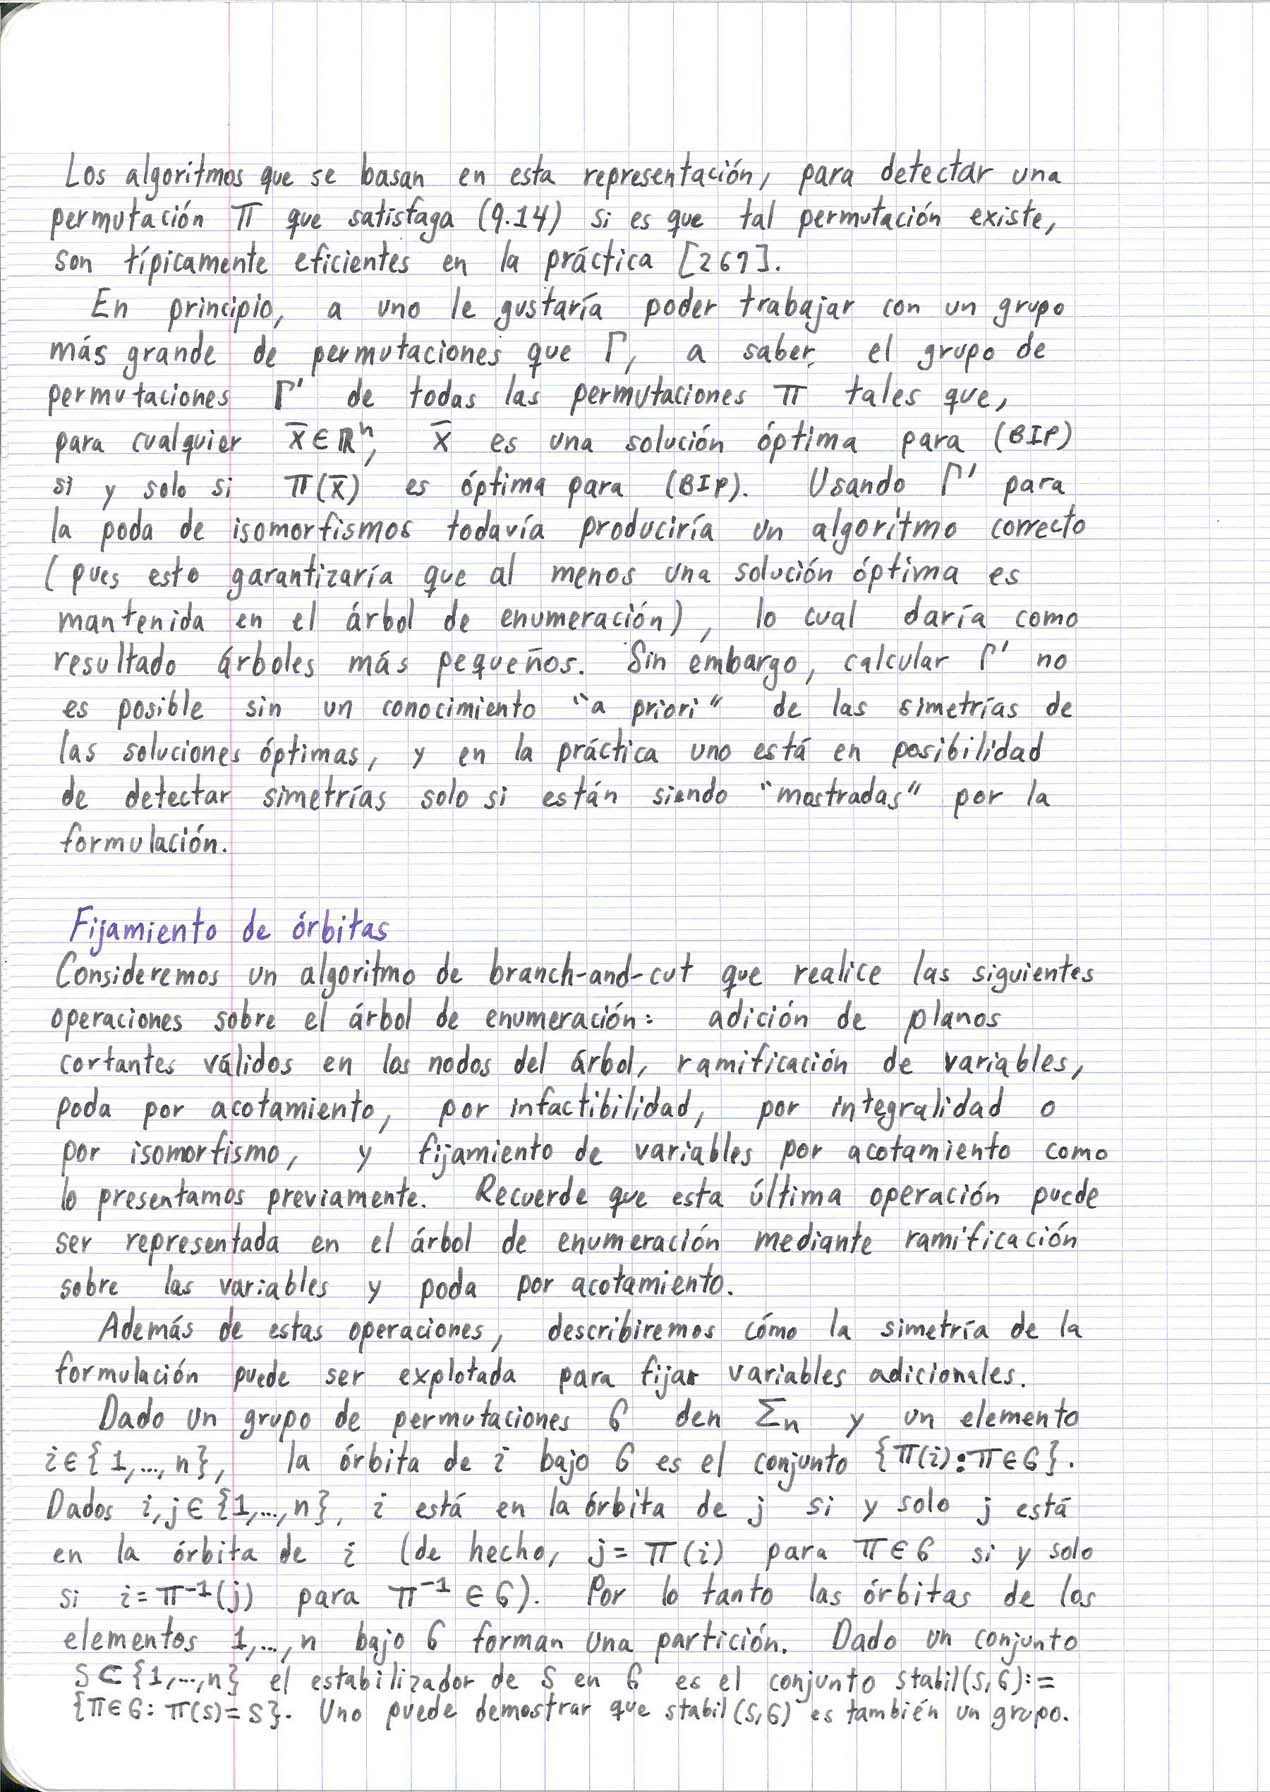 Los algoritmos que se basan en esta representación, para detectar una
permutación π que satisfaga (9.14) si es que tal permutación existe,
son típicamente eficientes en la práctica [267].
En principio, a uno le gustaría poder trabajar con un grupo
más grande de permutaciones que Γ, a saber, el grupo de
permutaciones Γ' de todas las permutaciones π tales que,
para cualquier x̄ ∈ ℝⁿ, x̄ es una solución óptima para (BIP)
si y solo si π(x̄) es óptima para (BIP). Usando Γ' para
la poda de isomorfismos todavía produciría un algoritmo correcto
(pues esto garantizaría que al menos una solución óptima es
mantenida en el árbol de enumeración), lo cual daría como
resultado árboles más pequeños. Sin embargo, calcular Γ' no
es posible sin un conocimiento "a priori" de las simetrías de
las soluciones óptimas, y en la práctica uno está en posibilidad
de detectar simetrías solo si están siendo "mostradas" por la
formulación.
Fijamiento de órbitas
Consideremos un algoritmo de branch-and-cut que realice las siguientes
operaciones sobre el árbol de enumeración: adición de planos
cortantes válidos en los nodos del árbol, ramificación de variables,
poda por acotamiento, por infactibilidad, por integralidad o
por isomorfismo, y fijamiento de variables por acotamiento como
lo presentamos previamente. Recuerde que esta última operación puede
ser representada en el árbol de enumeración mediante ramificación
sobre las variables y poda por acotamiento.
Además de estas operaciones, describiremos cómo la simetría de la
formulación puede ser explotada para fijar variables adicionales.
Dado un grupo de permutaciones G den Σn y un elemento
i∈{1,...,n}, la órbita de i bajo G es el conjunto {π(i):π∈G}.
Dados i,j∈{1,...,n}, i está en la órbita de j si y solo j está
en la órbita de i (de hecho, j=π(i) para π∈G si y solo
si i=π⁻¹(j) para π⁻¹∈G). Por lo tanto las órbitas de los
elementos 1,...,n bajo G forman una partición. Dado un conjunto
S⊂{1,...,n} el estabilizador de S en G es el conjunto stabil(S,G):=
{π∈G: π(S)=S}. Uno puede demostrar que stabil(S,G) es también un grupo.